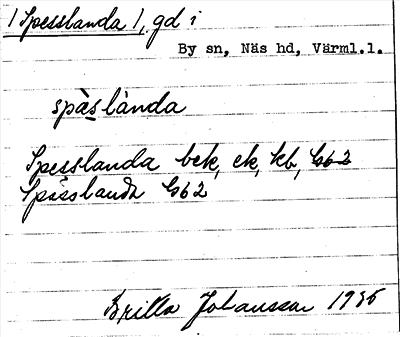 /Spesslanda/, gd i
By sn, Näs hd, Värml.l.
spàslànda
Spesslanda bek, ek, kb, G62
Spässlanda G62
Britta Johansson 1935